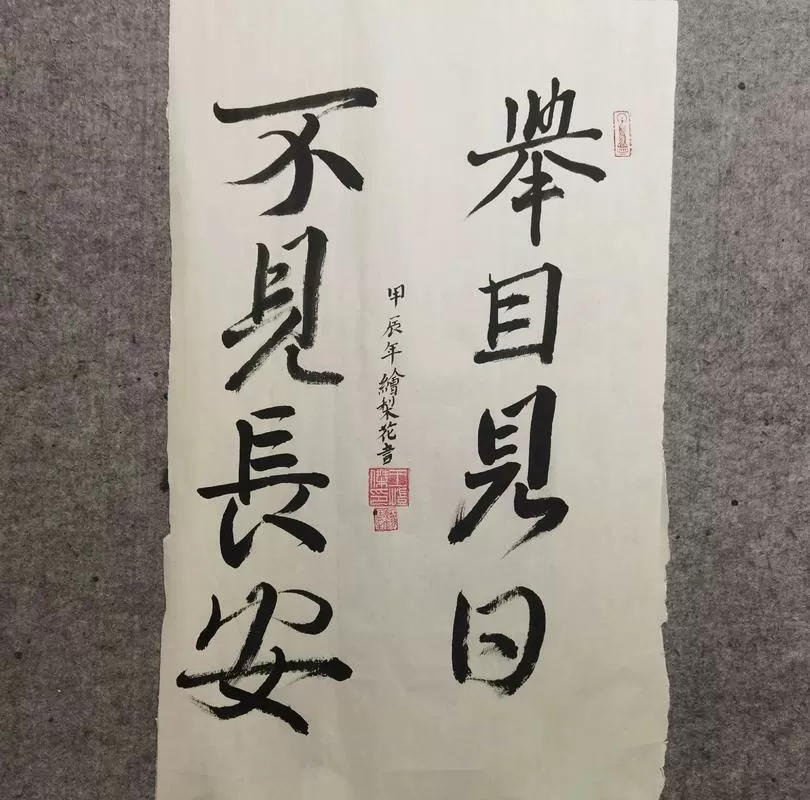 舉目見日
不見長安
甲辰年繪梨花書